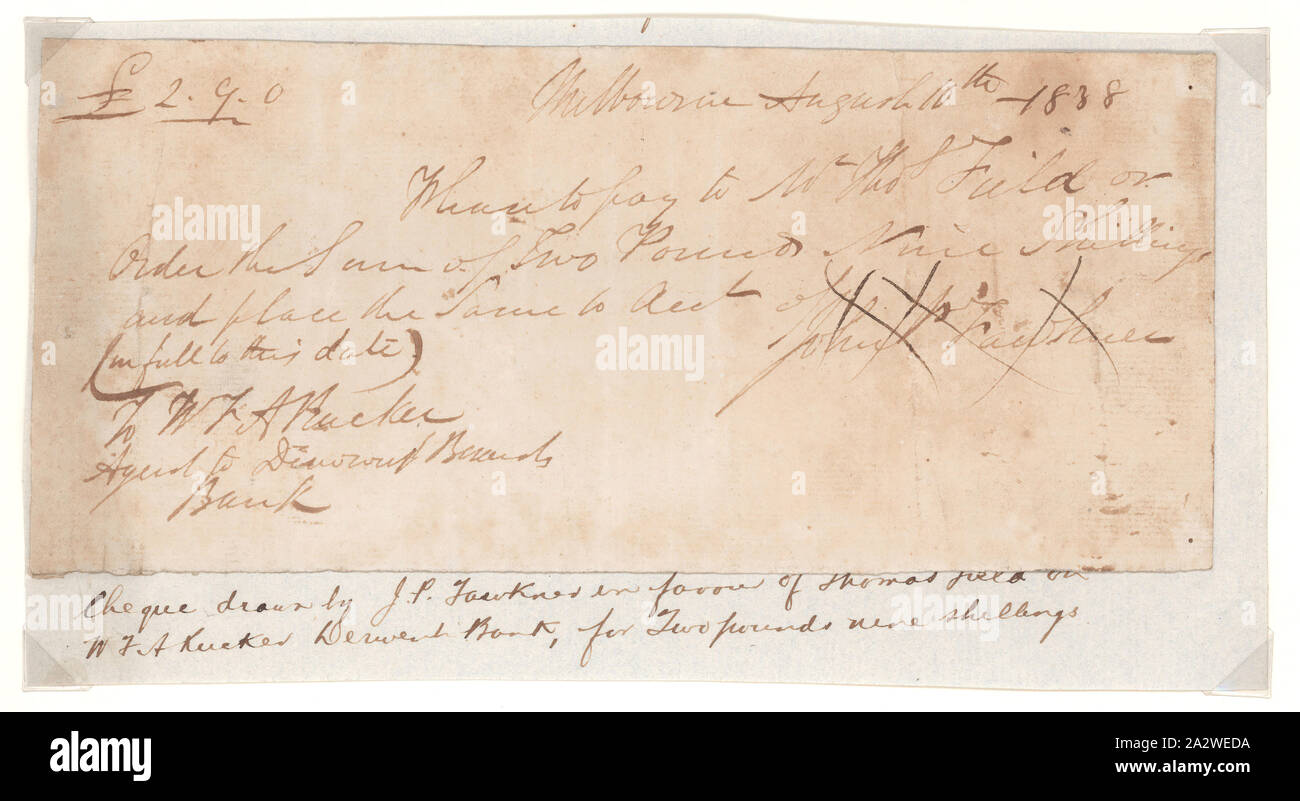 £ 2. 9. 0
Melbourne August 10th 1838
Please to pay to Mr Thos Field or
Order the Sum of Two Pounds Nine Shillings
and place the Same to Acct of
(in full to this date) John P Fawkner
To W F A Rucker
Agent to Derwent Bank
Bank
Cheque drawn by J. P. Fawkner in favour of Thomas Field on
W F A Rucker Derwent Bank, for Two pounds nine shillings
alamy
Image ID: 2A2WEDA
www.alamy.com